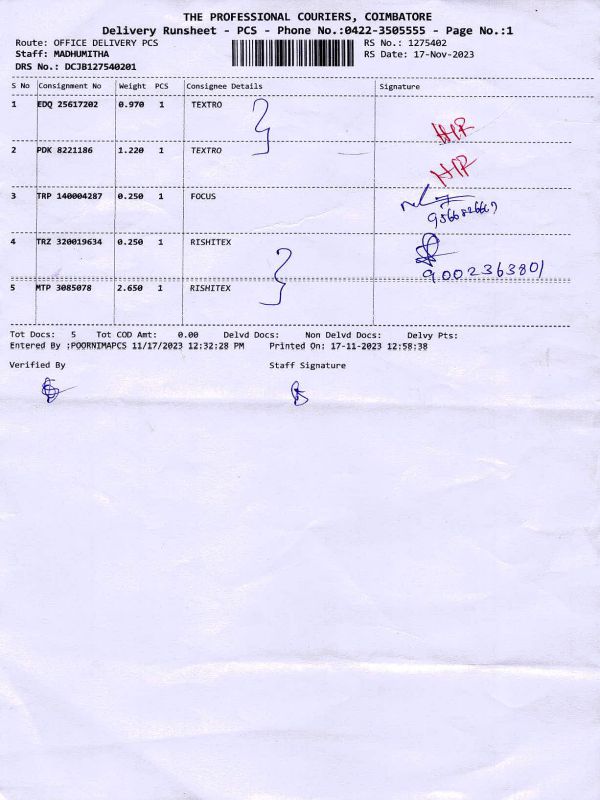 THE PROFESSIONAL COURIERS, COIMBATORE
Delivery Runsheet - PCS - Phone No.:0422-3505555 - Page No.:1
Route: OFFICE DELIVERY PCS RS No.: 1275402
Staff: MADHUMITHA RS Date: 17-Nov-2023
DRS No.: DCJB127540201
S No Consignment No Weight PCS Consignee Details Signature
1 EDQ 25617202 0.970 1 TEXTRO
2 PDK 8221186 1.220 1 TEXTRO
3 TRP 140004287 0.250 1 FOCUS
4 TRZ 320019634 0.250 1 RISHITEX
9002363801
5 MTP 3085078 2.650 1 RISHITEX
Tot Docs: 5 Tot COD Amt: 0.00 Delvd Docs: Non Delvd Docs: Delvy Pts:
Entered By :POORNIMAPCS 11/17/2023 12:32:28 PM Printed On: 17-11-2023 12:58:38
Verified By Staff Signature